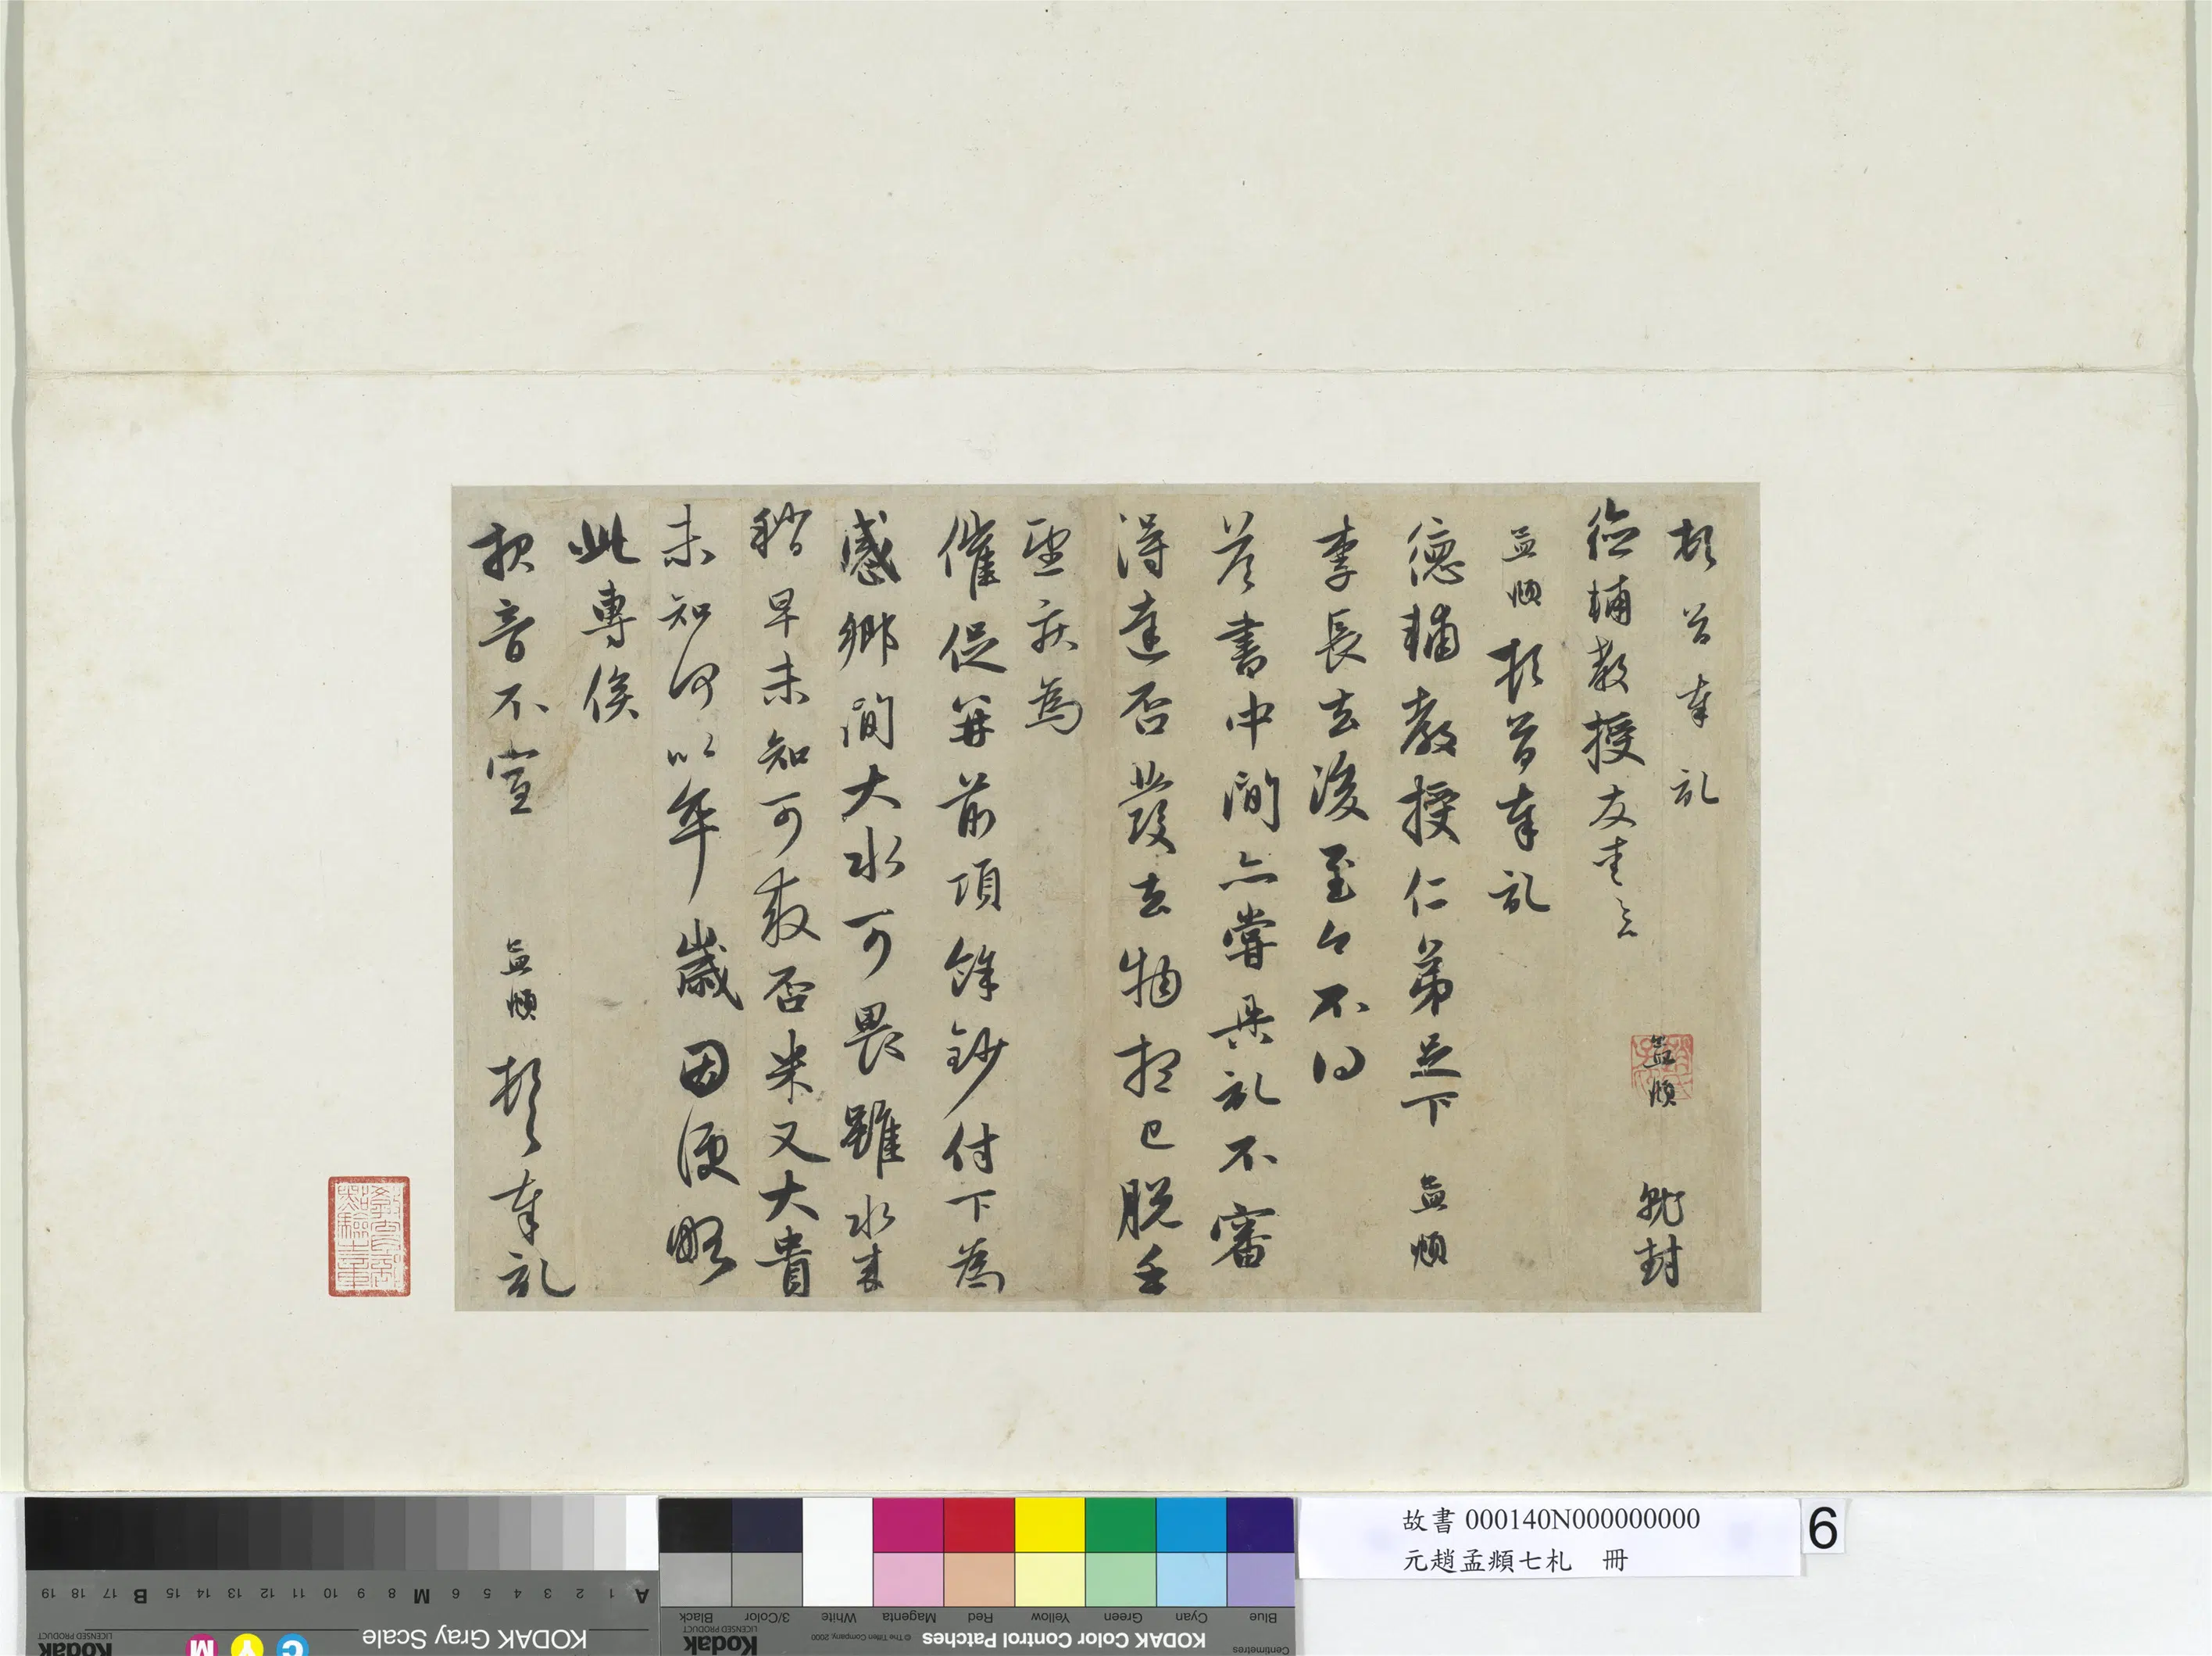 頓首奉記
德輔教授友愛足下
孟頫
就封
孟頫頓首奉記
德輔教授仁弟足下 孟頫
李長去後至今不得
答書中間亦嘗具記不審
得達否發去物想已脫手
望疾為
催促并前項餘鈔付下為
感鄉間大水可畏雖水來
稍早未知可救否米又大貴
未知何以卒歲因便略
此專俟
報音不宣
孟頫頓首奉記
故書 000140N000000000
元趙孟頫七札 冊
6
Kodak
LICENSED PRODUCT
KODAK Gray Scale
C Y M
A 1 2 3 4 5 6 M 8 9 10 11 12 13 14 15 B 17 18 19
KODAK Color Control Patches
© The Tiffen Company, 2000
Kodak
LICENSED PRODUCT
Centimetres
Blue Cyan Green Yellow Red Magenta White 3/Color Black